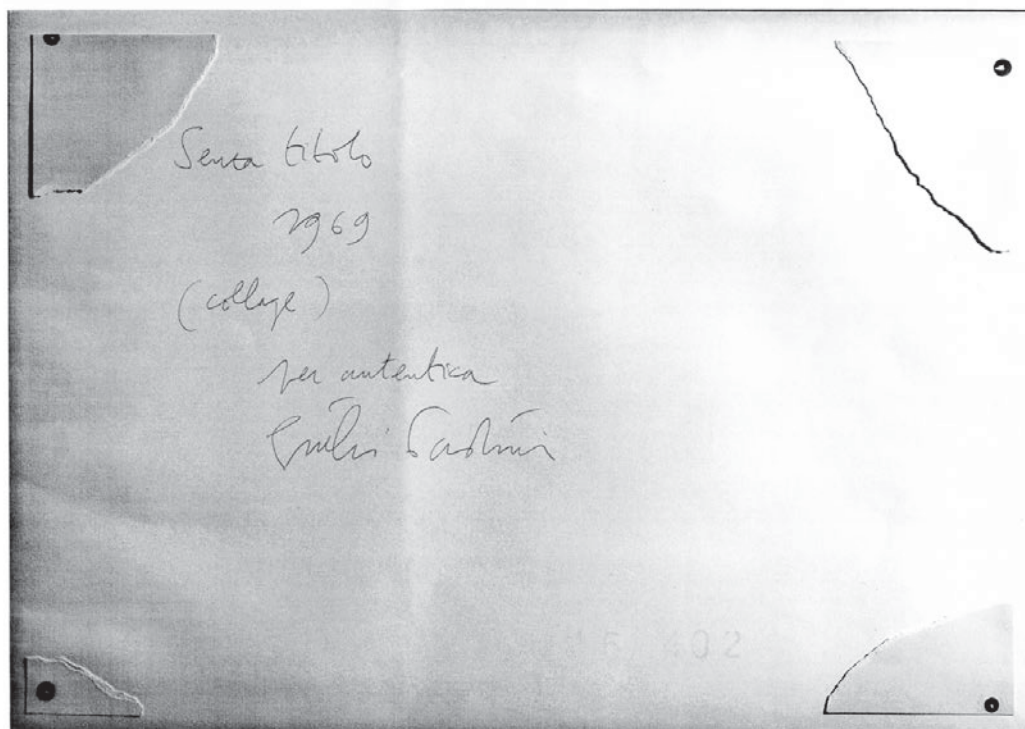 Senza titolo
1969
(collage)
per autentica
Giulio Paolini
402